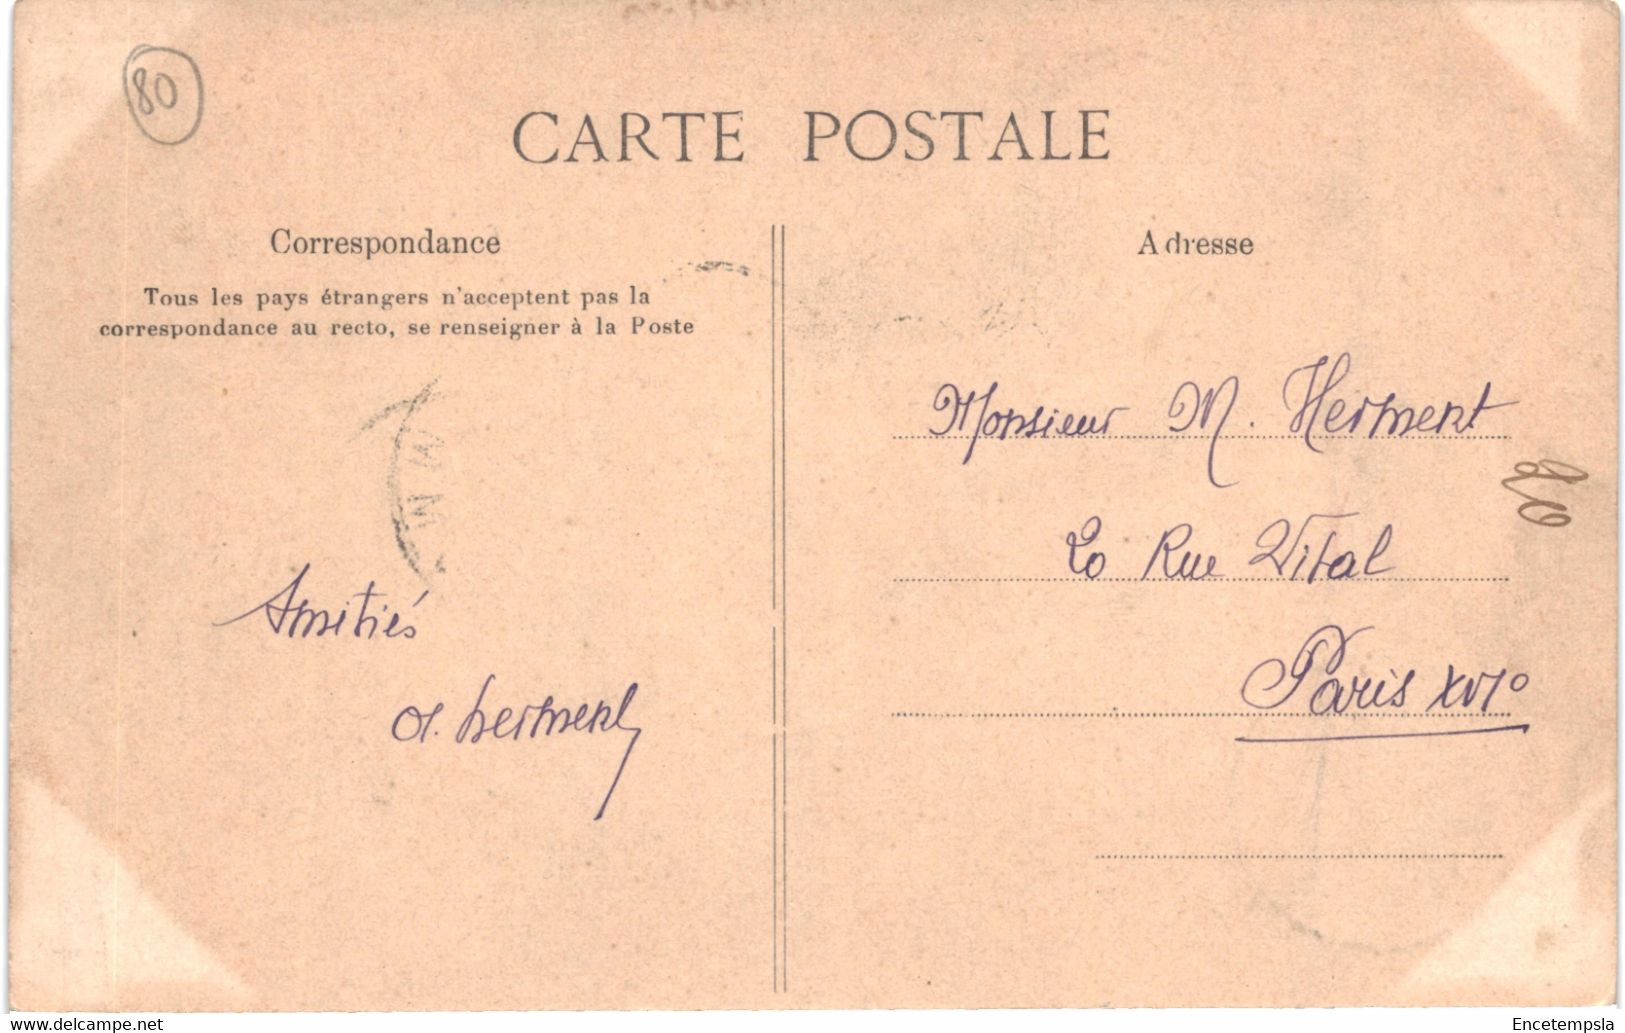 80
CARTE POSTALE
Correspondance
Tous les pays étrangers n'acceptent pas la
correspondance au recto, se renseigner à la Poste
Amitiés
Adresse
Monsieur M. Herment
20 Rue Vital
Paris XVI°
www.delcampe.net
Encetempsla